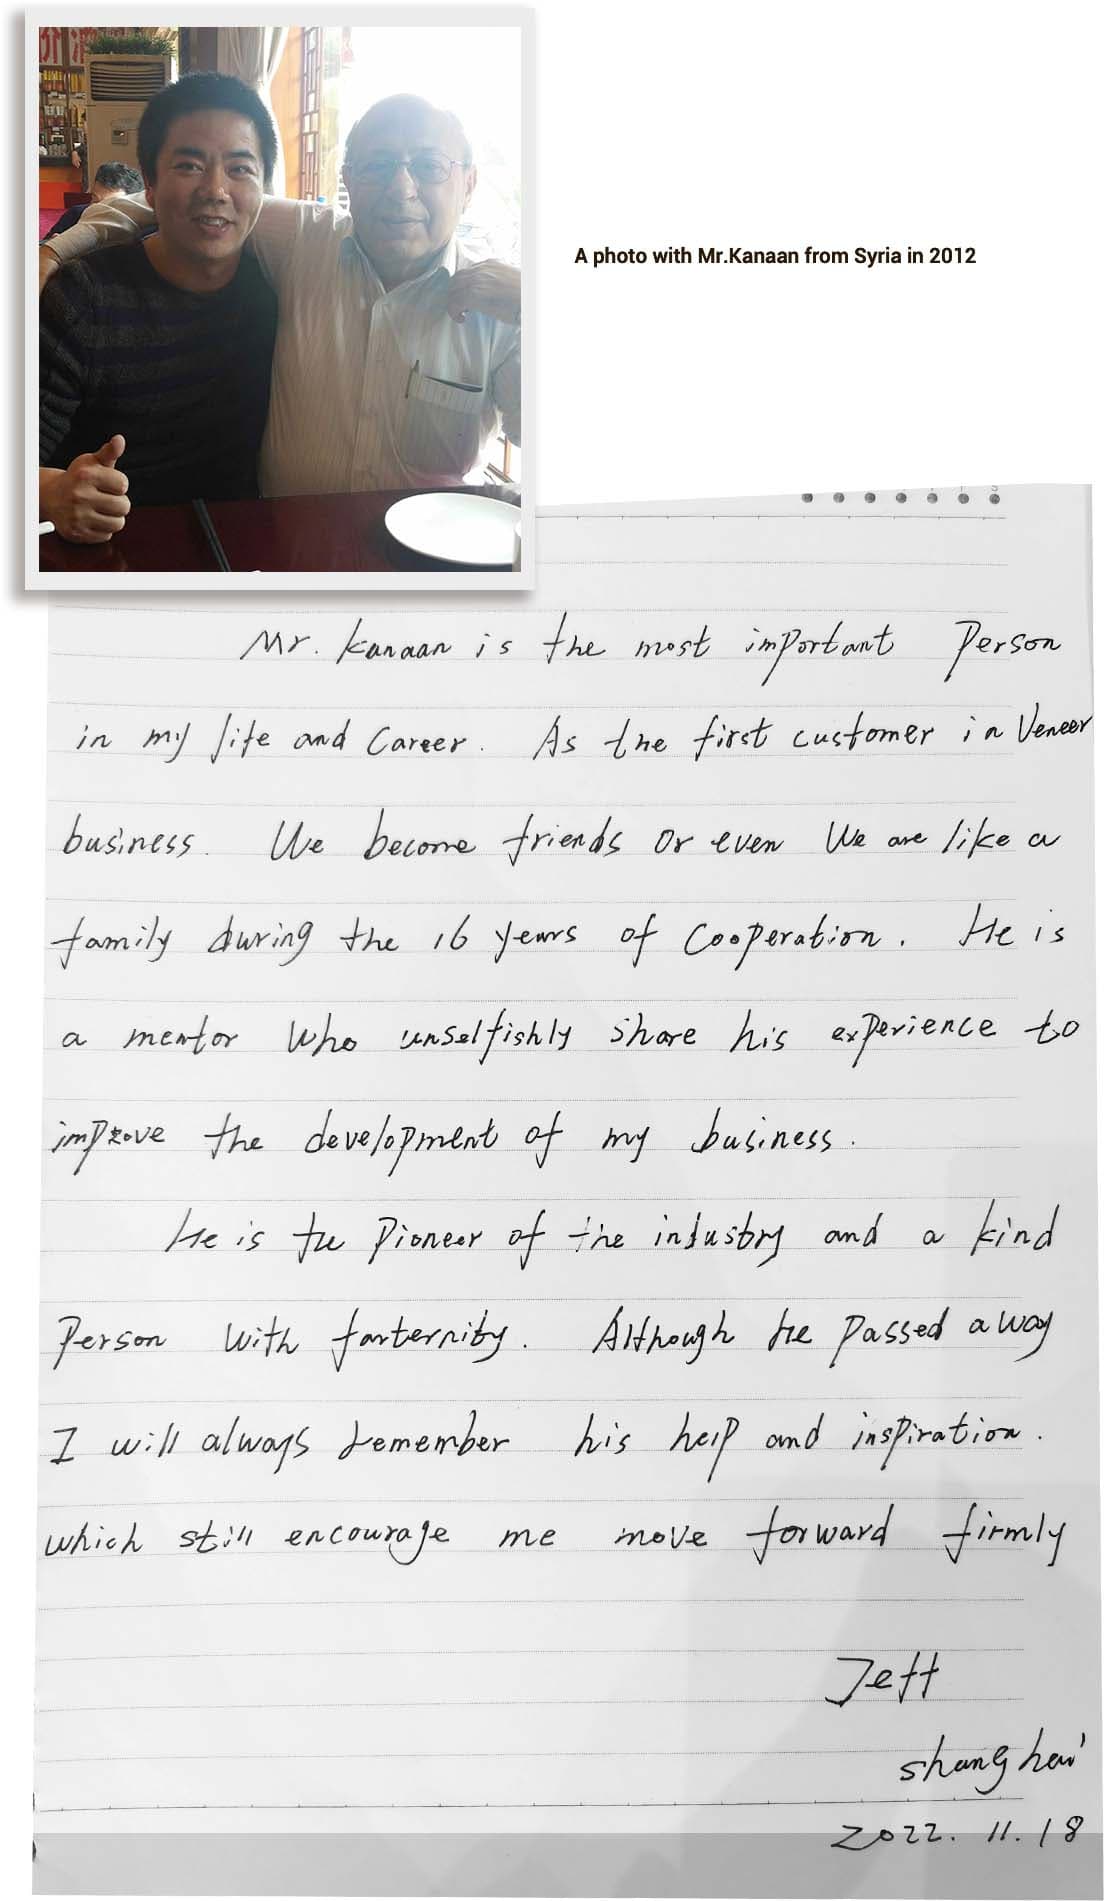 A photo with Mr.Kanaan from Syria in 2012
Mr. Kanaan is the most important Person
in my life and Career. As the first customer in Veneer
business. We become friends or even We are like a
family during the 16 years of Cooperation. He is
a mentor Who unselfishly share his experience to
improve the development of my business.
He is the Pioneer of the industry and a kind
Person With farternity. Although He Passed away
I will always remember his help and inspiration.
which still encourage me move forward firmly
Jeff
shanghai
2022. 11. 18